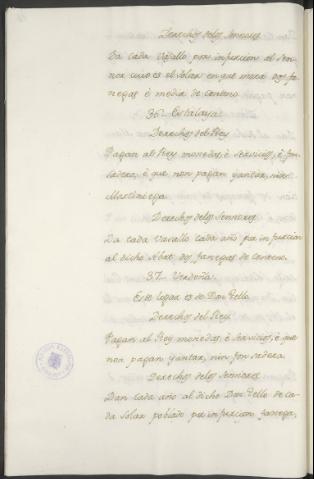 Derechos delos Sennores
Da cada Vasallo por infurcion al Sen-
nor cuio es el solar en que mora dos fa-
negas é media de Centeno.
36. Estalaya
Derechos del Rey
Pagan al Rey monedas, é servicios, é fon-
sadera, é que non pagan yantar, nin
Martiniega.
Derechos delos Sennores
Da cada Vasallo cada año por infurcion
al dicho Abat dos fanegas de
37. Verdeña.
Este logar es de Don Tello
Derechos del Rey.
Pagan al Rey monedas, é servicios, é que
non pagan yantar, nin fonsadera.
Derechos delos Sennores
Dan cada año al dicho Don Tello de ca-
da solar poblado por infurcion fanega,